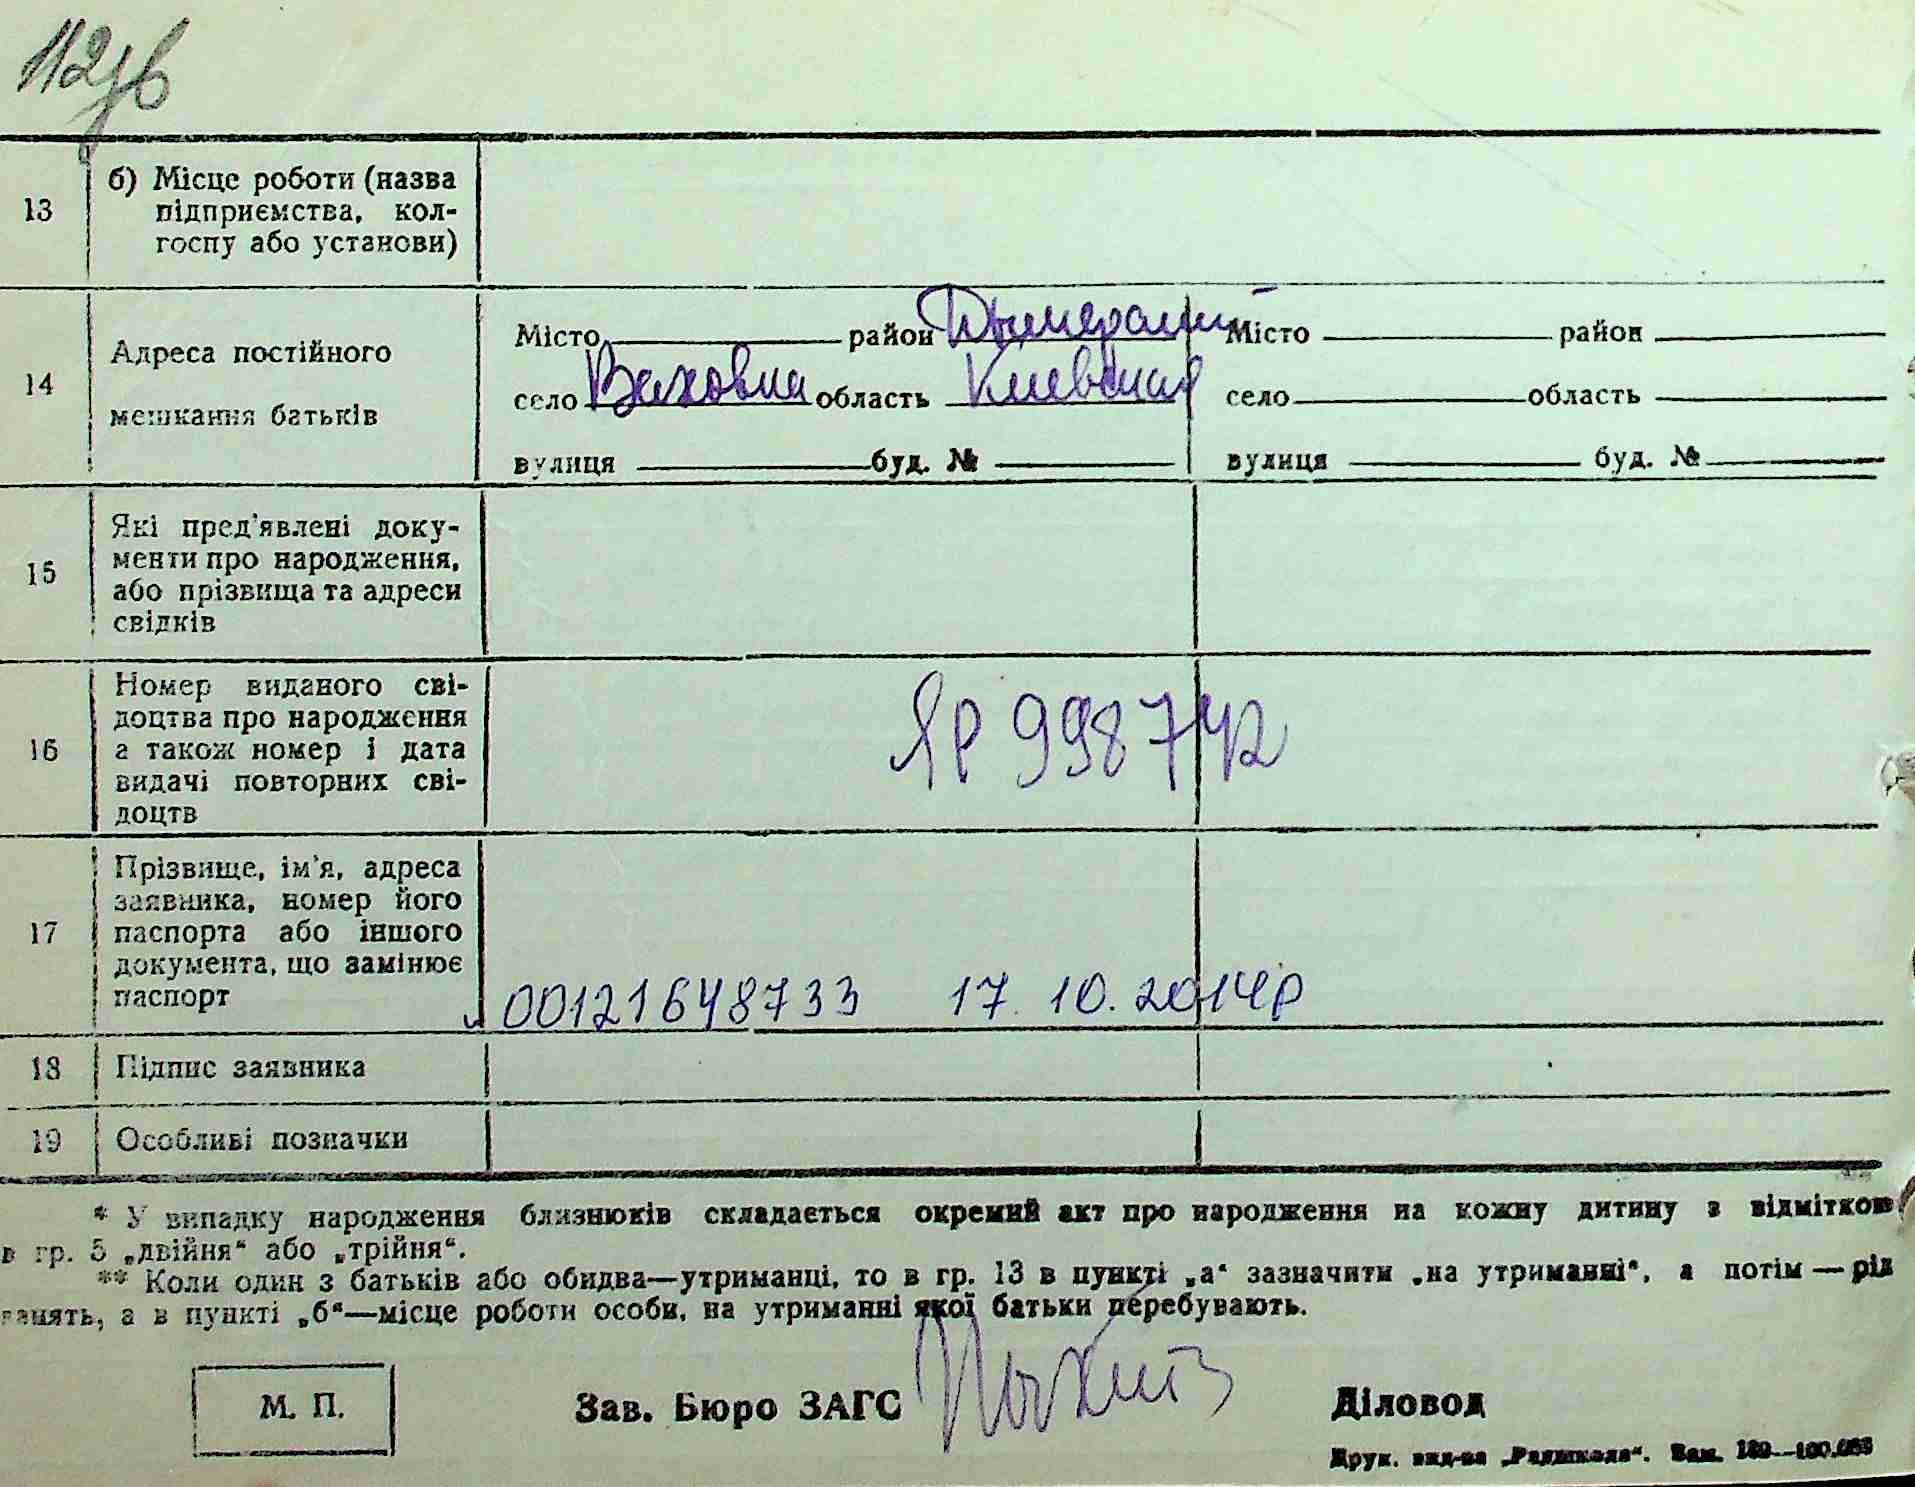 112зв
13 б) Місце роботи (назва
підприємства, кол-
госпу або установи)
14 Адреса постійного
мешкання батьків
Місто район Дымерский Місто район
село Ваховка область Киевская село область
вулиця буд. № вулиця буд. №
15 Які пред'явлені доку-
менти про народження,
або прізвища та адреси
свідків
16 Номер виданого сві-
доцтва про народження
а також номер і дата
видачі повторних сві-
доцтв
ЯР 998742
17 Прізвище, ім'я, адреса
заявника, номер його
паспорта або іншого
документа, що замінює
паспорт
00121648733 17.10.2014р
18 Підпис заявника
19 Особливі позначки
* У випадку народження близнюків складається окремий акт про народження на кожну дитину з відміткою
в гр. 5 „двійня“ або „трійня“.
** Коли один з батьків або обидва—утриманці, то в гр. 13 в пункті „а“ зазначити „на утриманні“, а потім — рід
занять, а в пункті „б“—місце роботи особи, на утриманні якої батьки перебувають.
М. П. Зав. Бюро ЗАГС Діловод
Друк. вид-ва „Радшкола“. Зам.